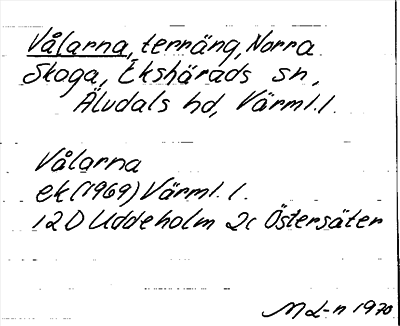 Vålarna, terräng, Norra
Skoga, Ekshärads sn,
Älvdals hd, Värml. l.
Vålarna
ek (1969) Värml. l.
12D Uddeholm 2c Östersäter
M L-n 1970